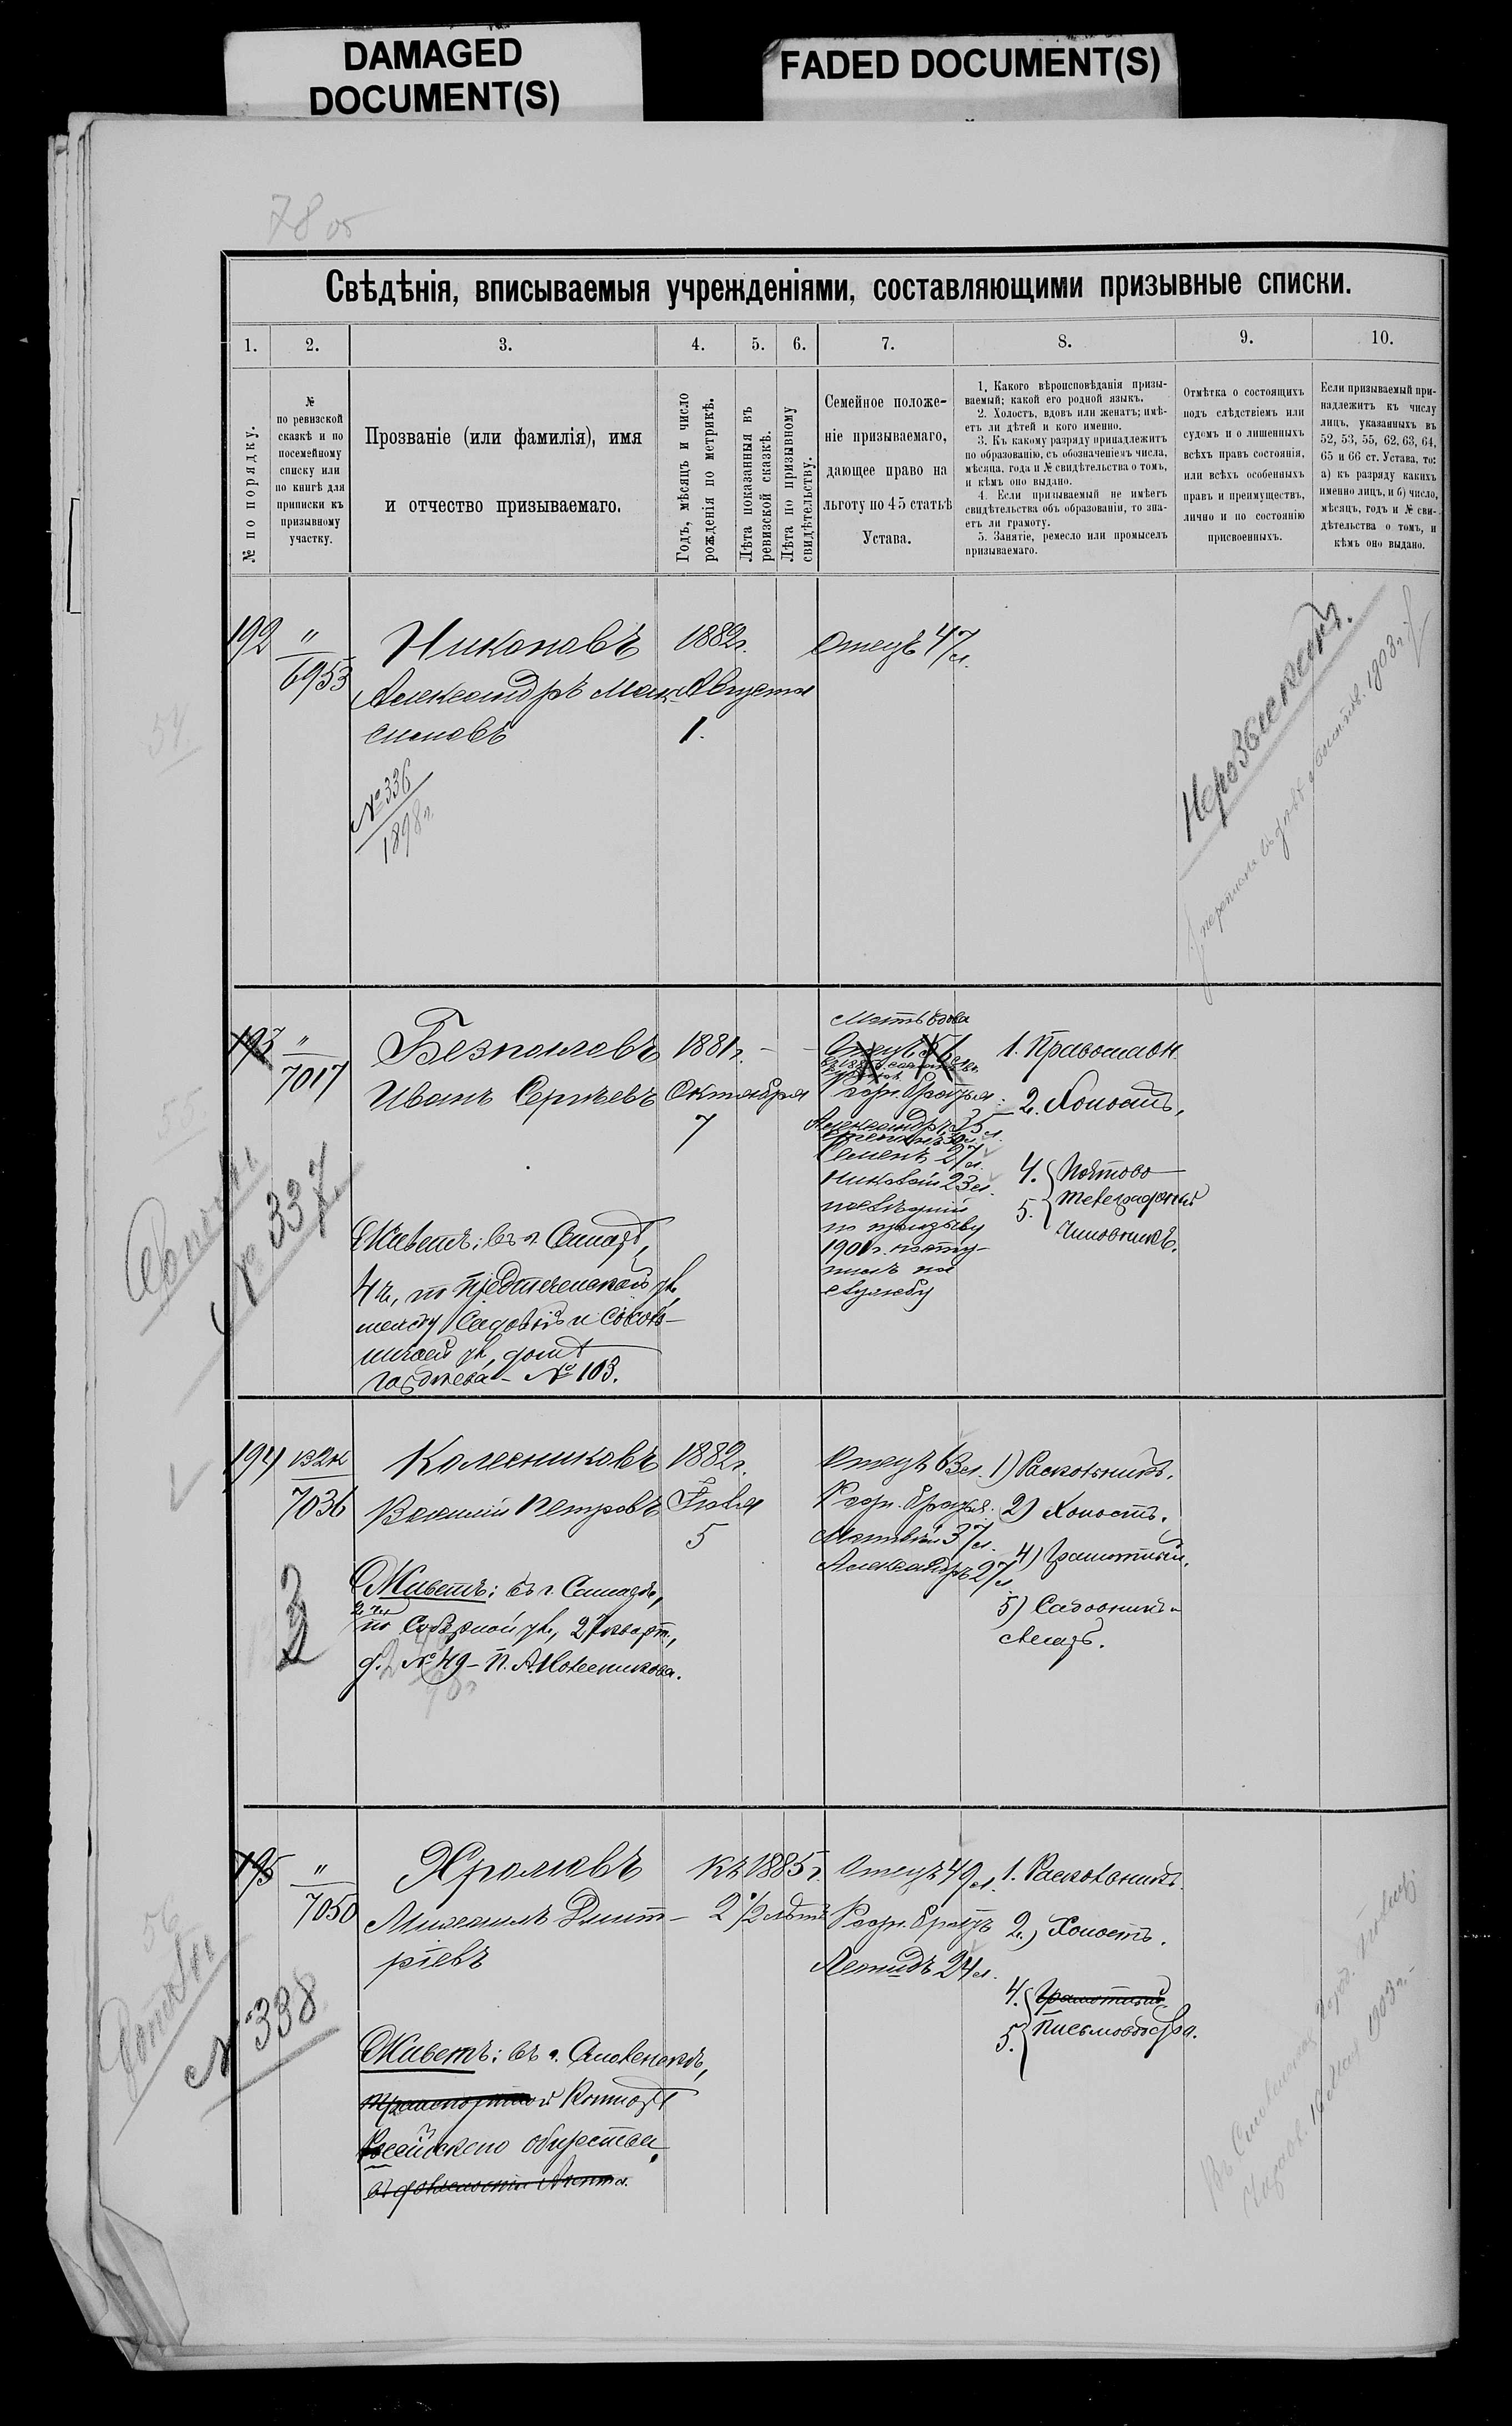 DAMAGED
DOCUMENT(S)
FADED DOCUMENT(S)
78 об
Свѣдѣнія, вписываемыя учрежденіями, составляющими призывные списки.
1.
2.
3.
4.
5.
6.
7.
8.
9.
10.
№ по порядку.
№
по ревизской
сказкѣ и по
посемейному
списку или
по книгѣ для
приписки къ
призывному
участку.
Прозваніе (или фамилія), имя
и отчество призываемаго.
Годъ, мѣсяцъ и число
рожденія по метрикѣ.
Лѣта показанныя въ
ревизской сказкѣ.
Лѣта по призывному
свидѣтельству.
Семейное положе-
ніе призываемаго,
дающее право на
льготу по 45 статьѣ
Устава.
1. Какого вѣроисповѣданія призы-
ваемый; какой его родной языкъ.
2. Холостъ, вдовъ или женатъ; имѣ-
етъ ли дѣтей и кого именно.
3. Къ какому разряду принадлежитъ
по образованію, съ обозначеніемъ числа,
мѣсяца, года и № свидѣтельства о томъ,
и кѣмъ оно выдано.
4. Если призываемый не имѣетъ
свидѣтельства объ образованіи, то зна-
етъ ли грамоту.
5. Занятіе, ремесло или промыселъ
призываемаго.
Отмѣтка о состоящихъ
подъ слѣдствіемъ или
судомъ и о лишенныхъ
всѣхъ правъ состоянія,
или всѣхъ особенныхъ
правъ и преимуществъ,
лично и по состоянію
присвоенныхъ.
Если призываемый при-
надлежитъ къ числу
лицъ, указанныхъ въ
52, 53, 55, 62, 63, 64,
65 и 66 ст. Устава, то:
а) къ разряду какихъ
именно лицъ, и б) число,
мѣсяцъ, годъ и № сви-
дѣтельства о томъ, и
кѣмъ оно выдано.
192
"
6953
Никоновъ
Александръ Мак-
симовъ
1882г.
Августа
1.
Отецъ 47 л.
№ 336
1898г.
Неразысканъ.
54.
193
"
7017
Безпаловъ
Иванъ Сергѣевъ
1881г.
Октября
7
Мать вдова
Родн. братья:
Александръ 35 л.
Семенъ 27 л.
Николай 23 л.
послѣдній
по призыву
1901г. посту-
пилъ на
службу
1. Православн.
2. Холостъ,
4. Почтово
5. телеграфный
чиновникъ.
55
№ 337
Живетъ: въ г. Самарѣ,
4 ч., по Предтеченской ул.,
между Садовой и Соков-
ничьей ул., домъ
№ 103.
194
7036
Колесниковъ
Василій Петровъ
1882г.
Іюля
5
Отецъ 63 л.
Родн. братья:
Матвѣй 37 л.
Александръ 27 л.
1) Раскольникъ.
2) Холостъ.
4) Грамотный.
5) Садовникъ
3
Живетъ: въ г. Самарѣ,
2 ч.
по Соборной ул., 27 кварт.,
д. № 49 - П. А. Колесникова.
195
"
7050
Хролювъ
Михаилъ Дмит-
ріевъ
Къ 1885г.
2 1/2 лѣтъ
Отецъ 49 л.
Родн. братъ
Леонидъ 24 л.
1. Раскольникъ.
2.) Холостъ.
4. Грамотный
5. Письмоводства.
56
№ 338
Живетъ: въ г. Смоленскѣ,
Конторѣ
Россійскаго общества